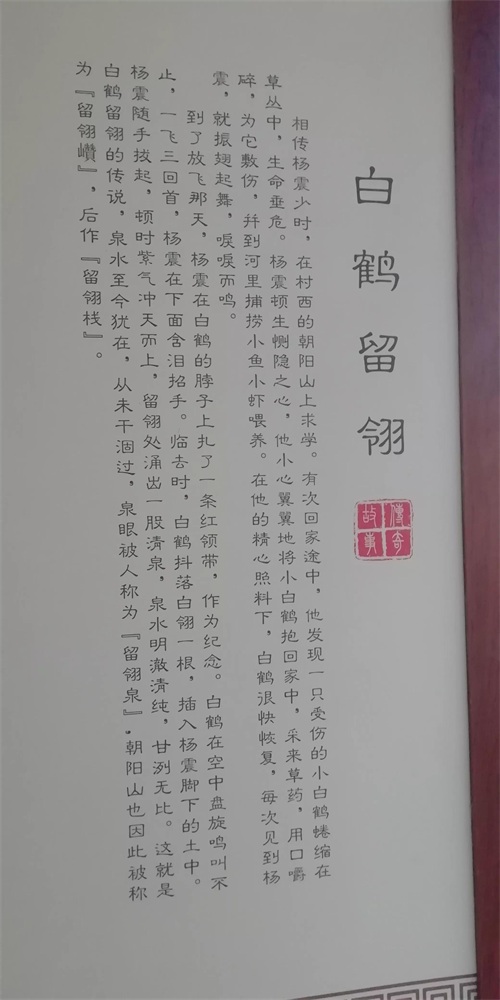 白鹤留翎
传奇故事
相传杨震少时，在村西的朝阳山上求学。有次回家途中，他发现一只受伤的小白鹤蜷缩在
草丛中，生命垂危。杨震顿生恻隐之心，他小心翼翼地将小白鹤抱回家中，采来草药，用口嚼
碎，为它敷伤，并到河里捕捞小鱼小虾喂养。在他的精心照料下，白鹤很快恢复，每次见到杨
震，就振翅起舞，唳唳而鸣。
到了放飞那天，杨震在白鹤的脖子上扎了一条红领带，作为纪念。白鹤在空中盘旋鸣叫不
止，一飞三回首，杨震在下面含泪招手。临去时，白鹤抖落白翎一根，插入杨震脚下的土中。
杨震随手拔起，顿时紫气冲天而上，留翎处涌出一股清泉，泉水明澈清纯，甘冽无比。这就是
白鹤留翎的传说，泉水至今犹在，从未干涸过，泉眼被人称为『留翎泉』，朝阳山也因此被称
为『留翎巑』，后作『留翎栈』。